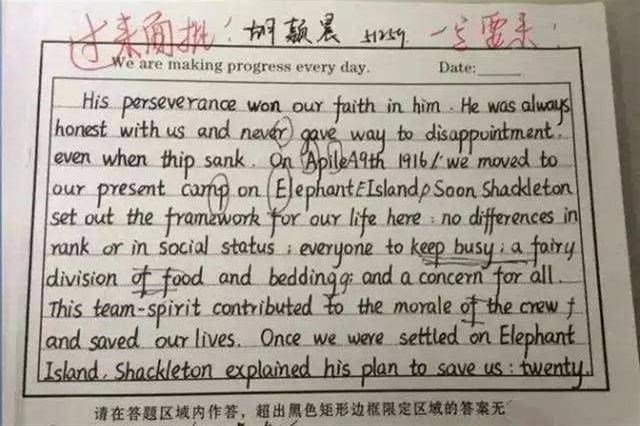 过来面批! 胡颖晨 51259 一定要来!
We are making progress every day. Date:
His perseverance won our faith in him. He was always
honest with us and never gave way to disappointment.
even when thip sank. On Apile19th 1916, we moved to
our present camp on Elephant Island, Soon Shackleton
set out the framework for our life here: no differences in
rank or in social status; everyone to keep busy; a fairy
division of food and bedding; and a concern for all.
This team-spirit contributed to the morale of the crew
and saved our lives. Once we were settled on Elephant
Island, Shackleton explained his plan to save us: twenty
请在答题区域内作答,超出黑色矩形边框限定区域的答案无